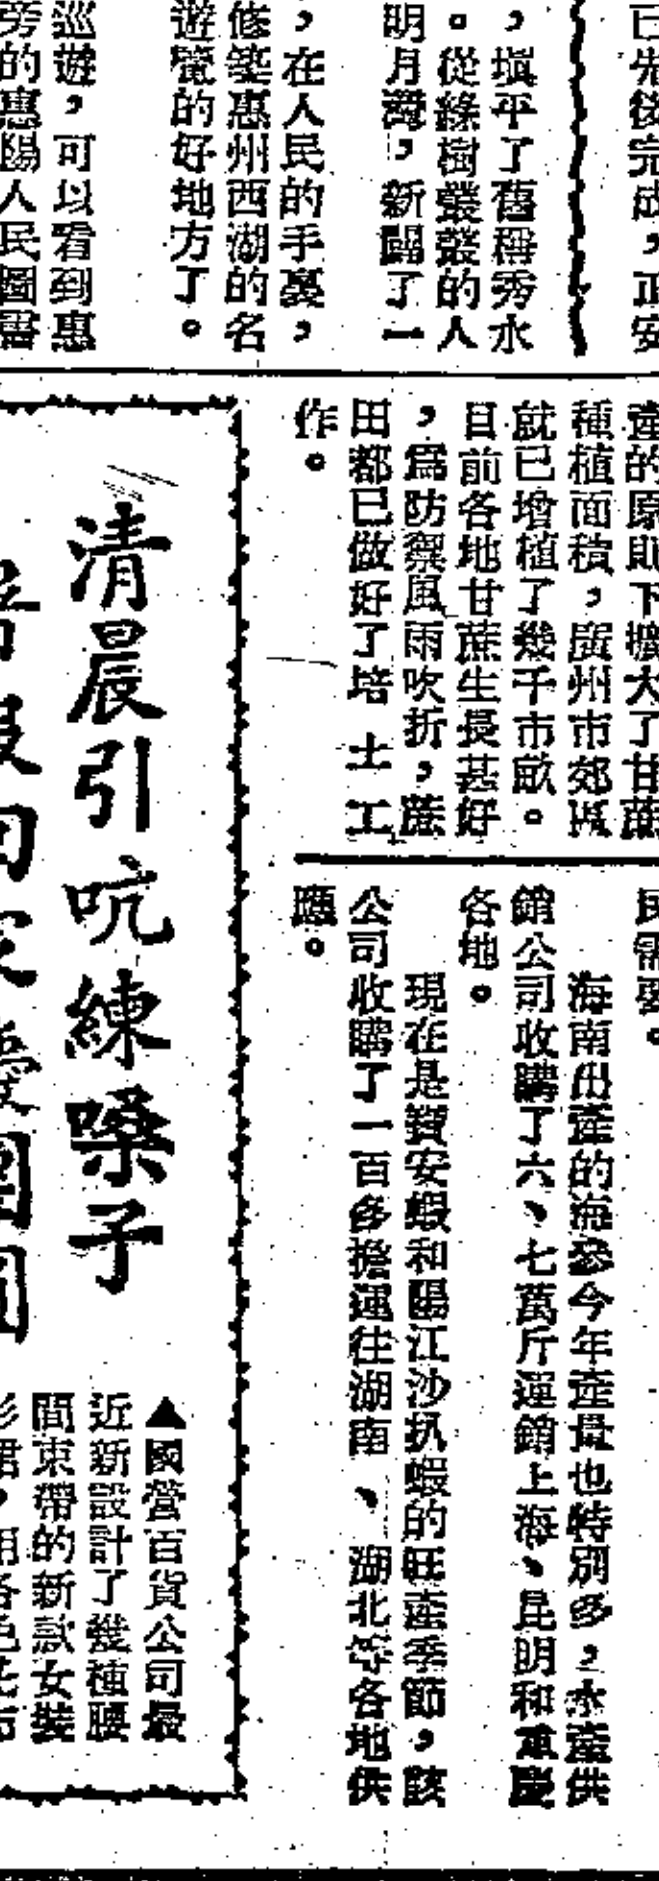 已先後完成，正安
，塡平了舊稱秀水
。從綠樹叢叢的人
明月灣，新闢了一
，在人民的手裏，
修築惠州西湖的名
遊覽的好地方了。
巡遊，可以看到惠
旁的惠陽人民圖書
產的原則下擴大了甘蔗
種植面積，廣州市郊區
就已增植了幾千市畝。
目前各地甘蔗生長甚好
，爲防禦風雨吹折，蔗
田都已做好了培土工
作。
民需要。
海南出產的海參今年產量也特別多，水產供
銷公司收購了六、七萬斤運銷上海、昆明和重慶
各地。
現在是寶安蝦和陽江沙扒蝦的旺產季節，該
公司收購了一百多擔運往湖南、湖北等各地供
應。
清晨引吭練嗓子
▲國營百貨公司最
近新設計了幾種腰
間束帶的新款女裝